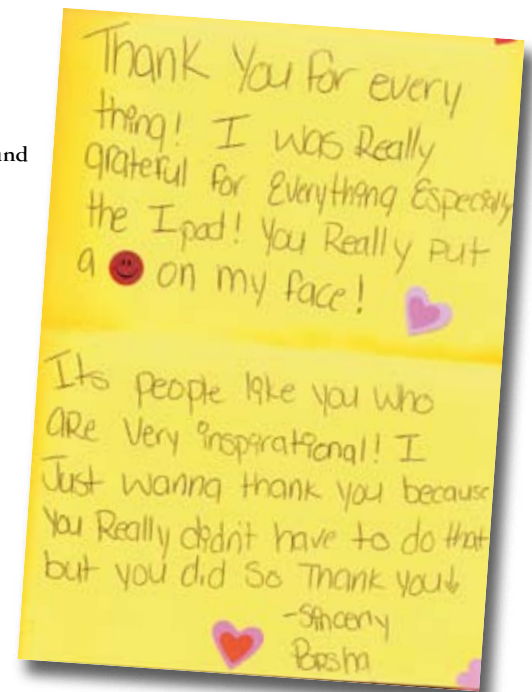 und
Thank You for every
thing! I was Really
grateful for Everything Especially
the Ipad! You Really put
a on my face!
Its people like you who
are very inspirational! I
Just wanna thank you because
you Really didn't have to do that
but you did so Thank you!
-Sincerly
Porsha